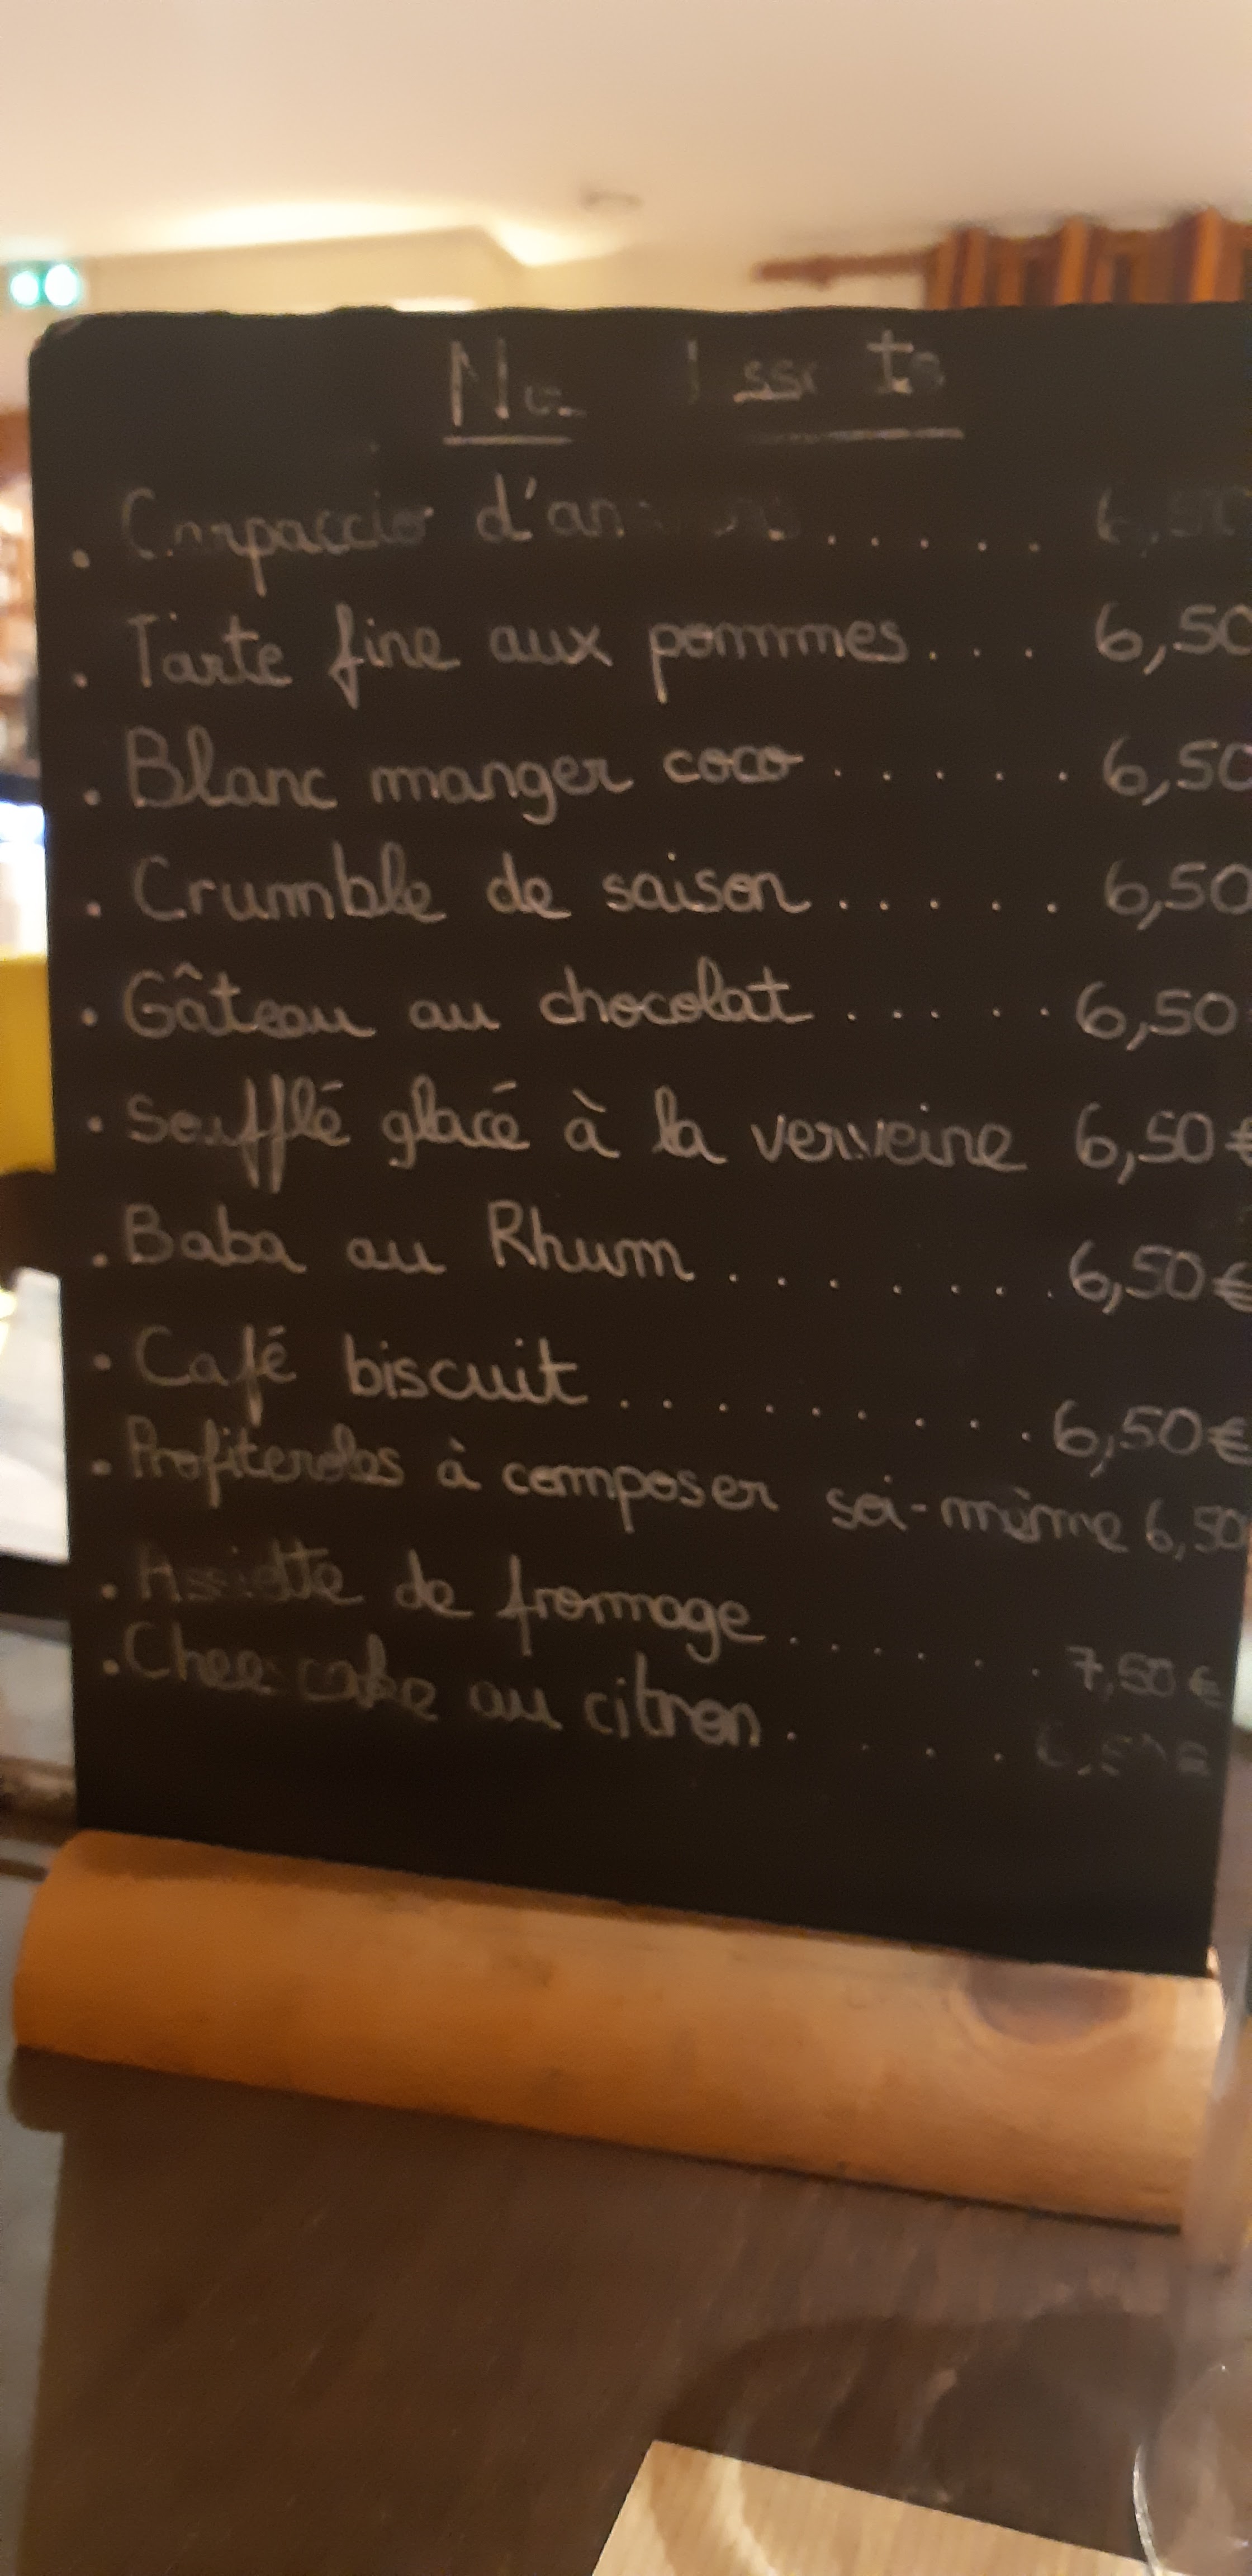 . Carpaccio . . . . . .
. Tarte fine aux pommes . . . 6,50
. Blanc manger coco . . . . . . 6,50
. Crumble de saison . . . . . . 6,50
. Gâteau au chocolat . . . . . 6,50
. Soufflé glacé à la verveine 6,50€
. Baba au Rhum . . . . . . . 6,50€
. Café biscuit . . . . . . . . . . 6,50€
. Profiteroles à composer soi-même 6,50
. Assiette de fromage . . . . . . 7,50€
. Cheesecake au citron . . . . .